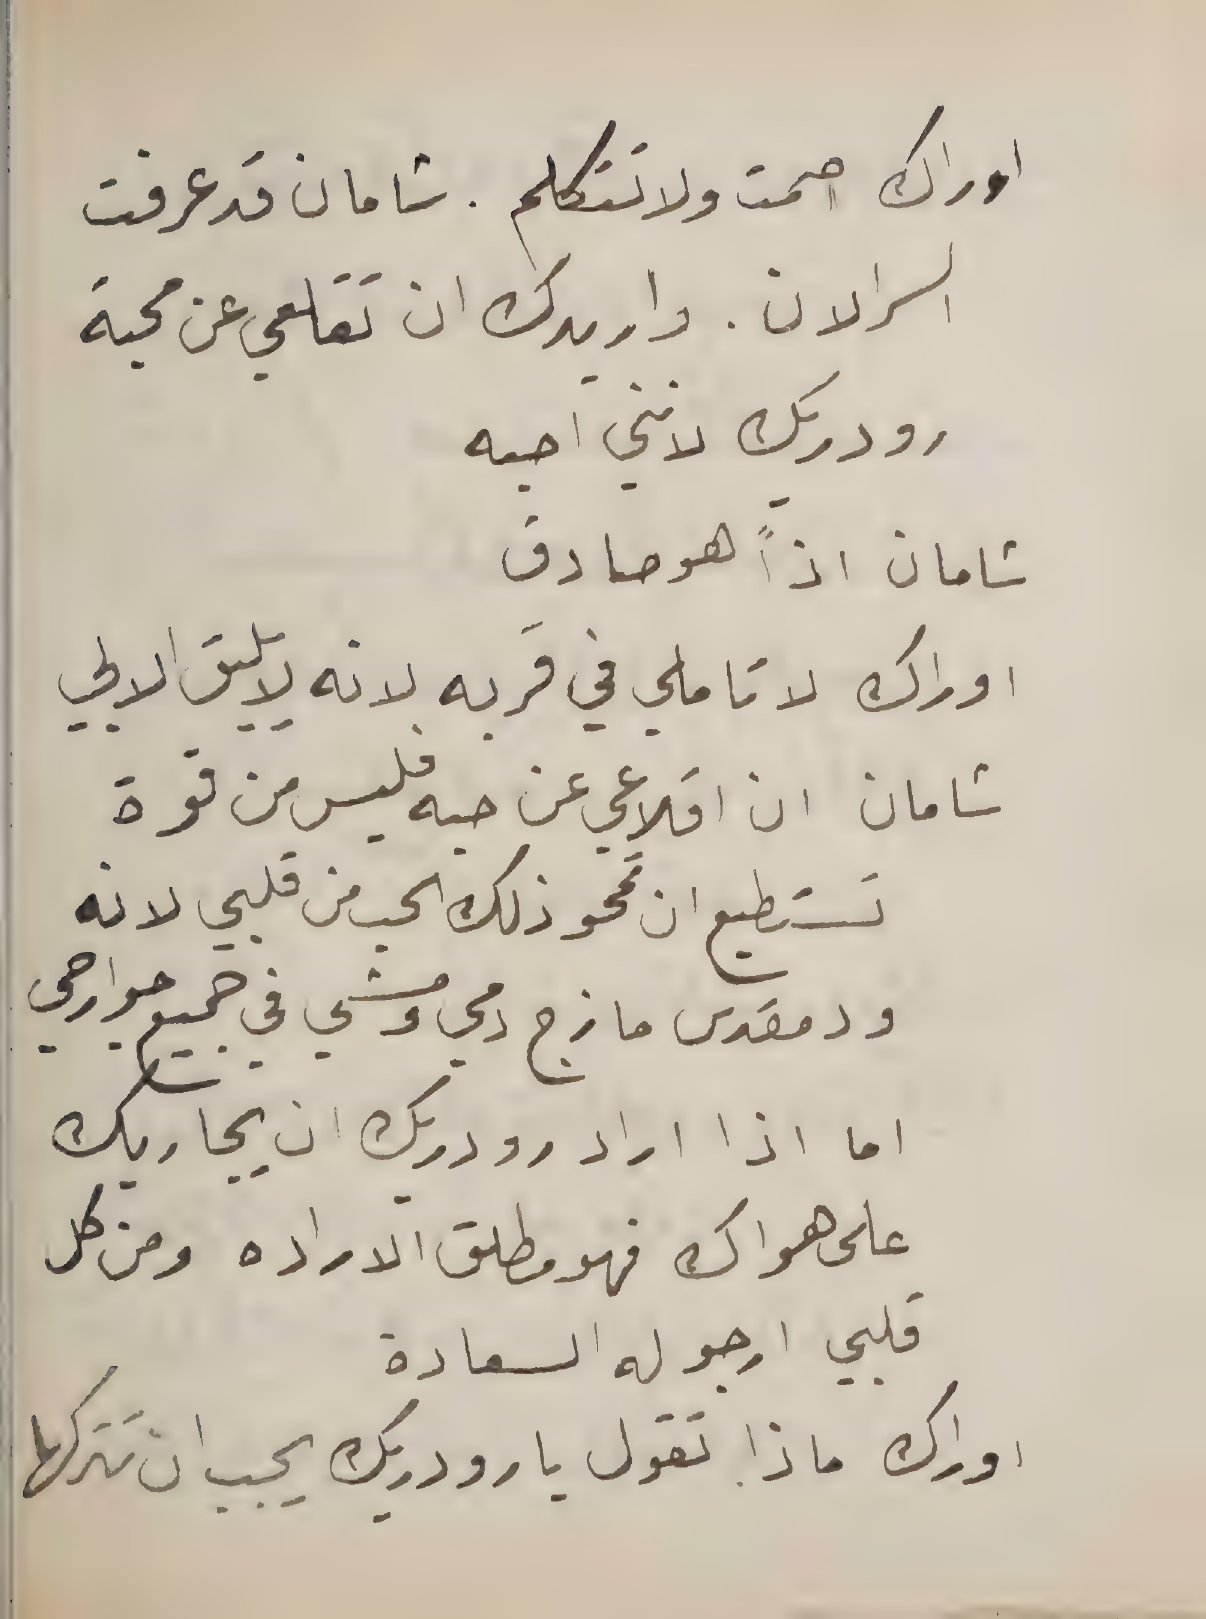 اوراك اصمت ولا تتكلم . شامان قد عرفت
السر الان . واريدك ان تقلعي عن محبة
رودريك لانني احبه
شامان اذاً هو صادق
اوراك لا تاملي في قربه لانه لا يليق الا بي
شامان ان اقلاعي عن حبه فليس من قوة
تستطيع ان تمحو ذلك الحب من قلبي لانه
ود مقدس مازج دمي ومشى في جميع جوارحي
اما اذا اراد رودريك ان يجاريك
على هواك فهو مطلق الاراده ومن كل
قلبي ارجو له السعادة
اوراك ماذا تقول يا رودريك يجب ان تتركها